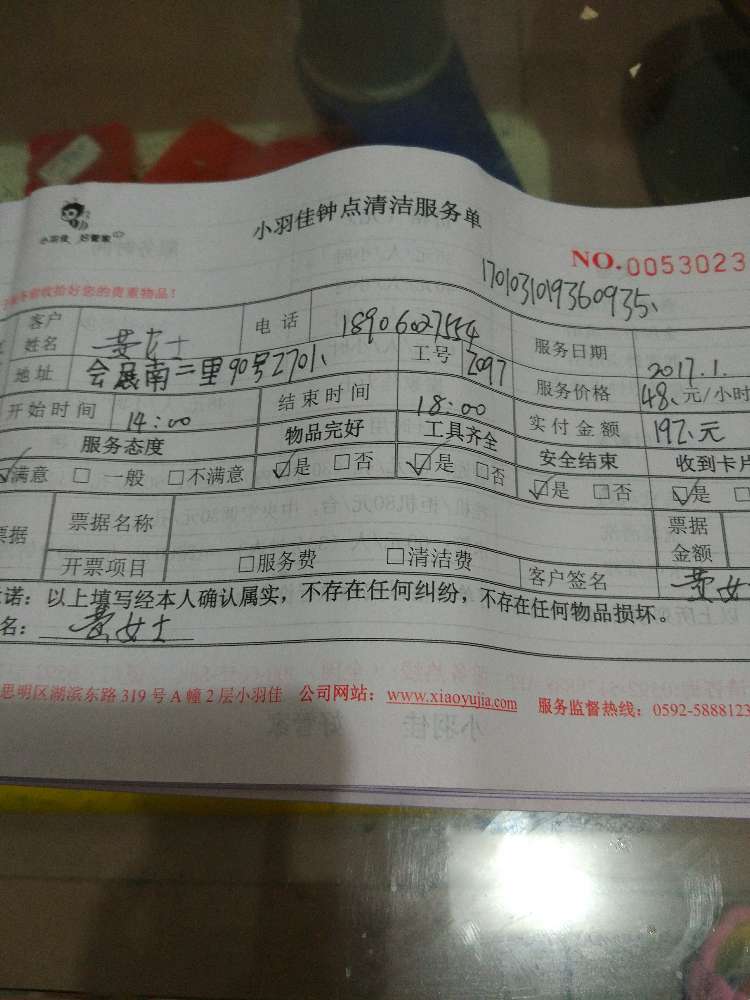 小羽佳 好管家
小羽佳钟点清洁服务单
NO.0053023
收拾好您的贵重物品！
1701031019360935、
客户姓名 黄女士 电话 18906027554 服务日期 2017.1.
地址 会展南二里90号2701、 工号 2097 服务价格 48、元/小时
开始时间 14:00 结束时间 18:00 实付金额 192、元
服务态度 物品完好 工具齐全 安全结束 收到卡片
☑满意 □一般 □不满意 ☑是 □否 ☑是 □否 ☑是 □否 ☑是 □
票据 票据名称 票据金额
开票项目 □服务费 □清洁费 客户签名 黄女
诺：以上填写经本人确认属实，不存在任何纠纷，不存在任何物品损坏。
名：黄女士
思明区湖滨东路 319 号 A 幢 2 层小羽佳 公司网站：www.xiaoyujia.com 服务监督热线：0592-5888123